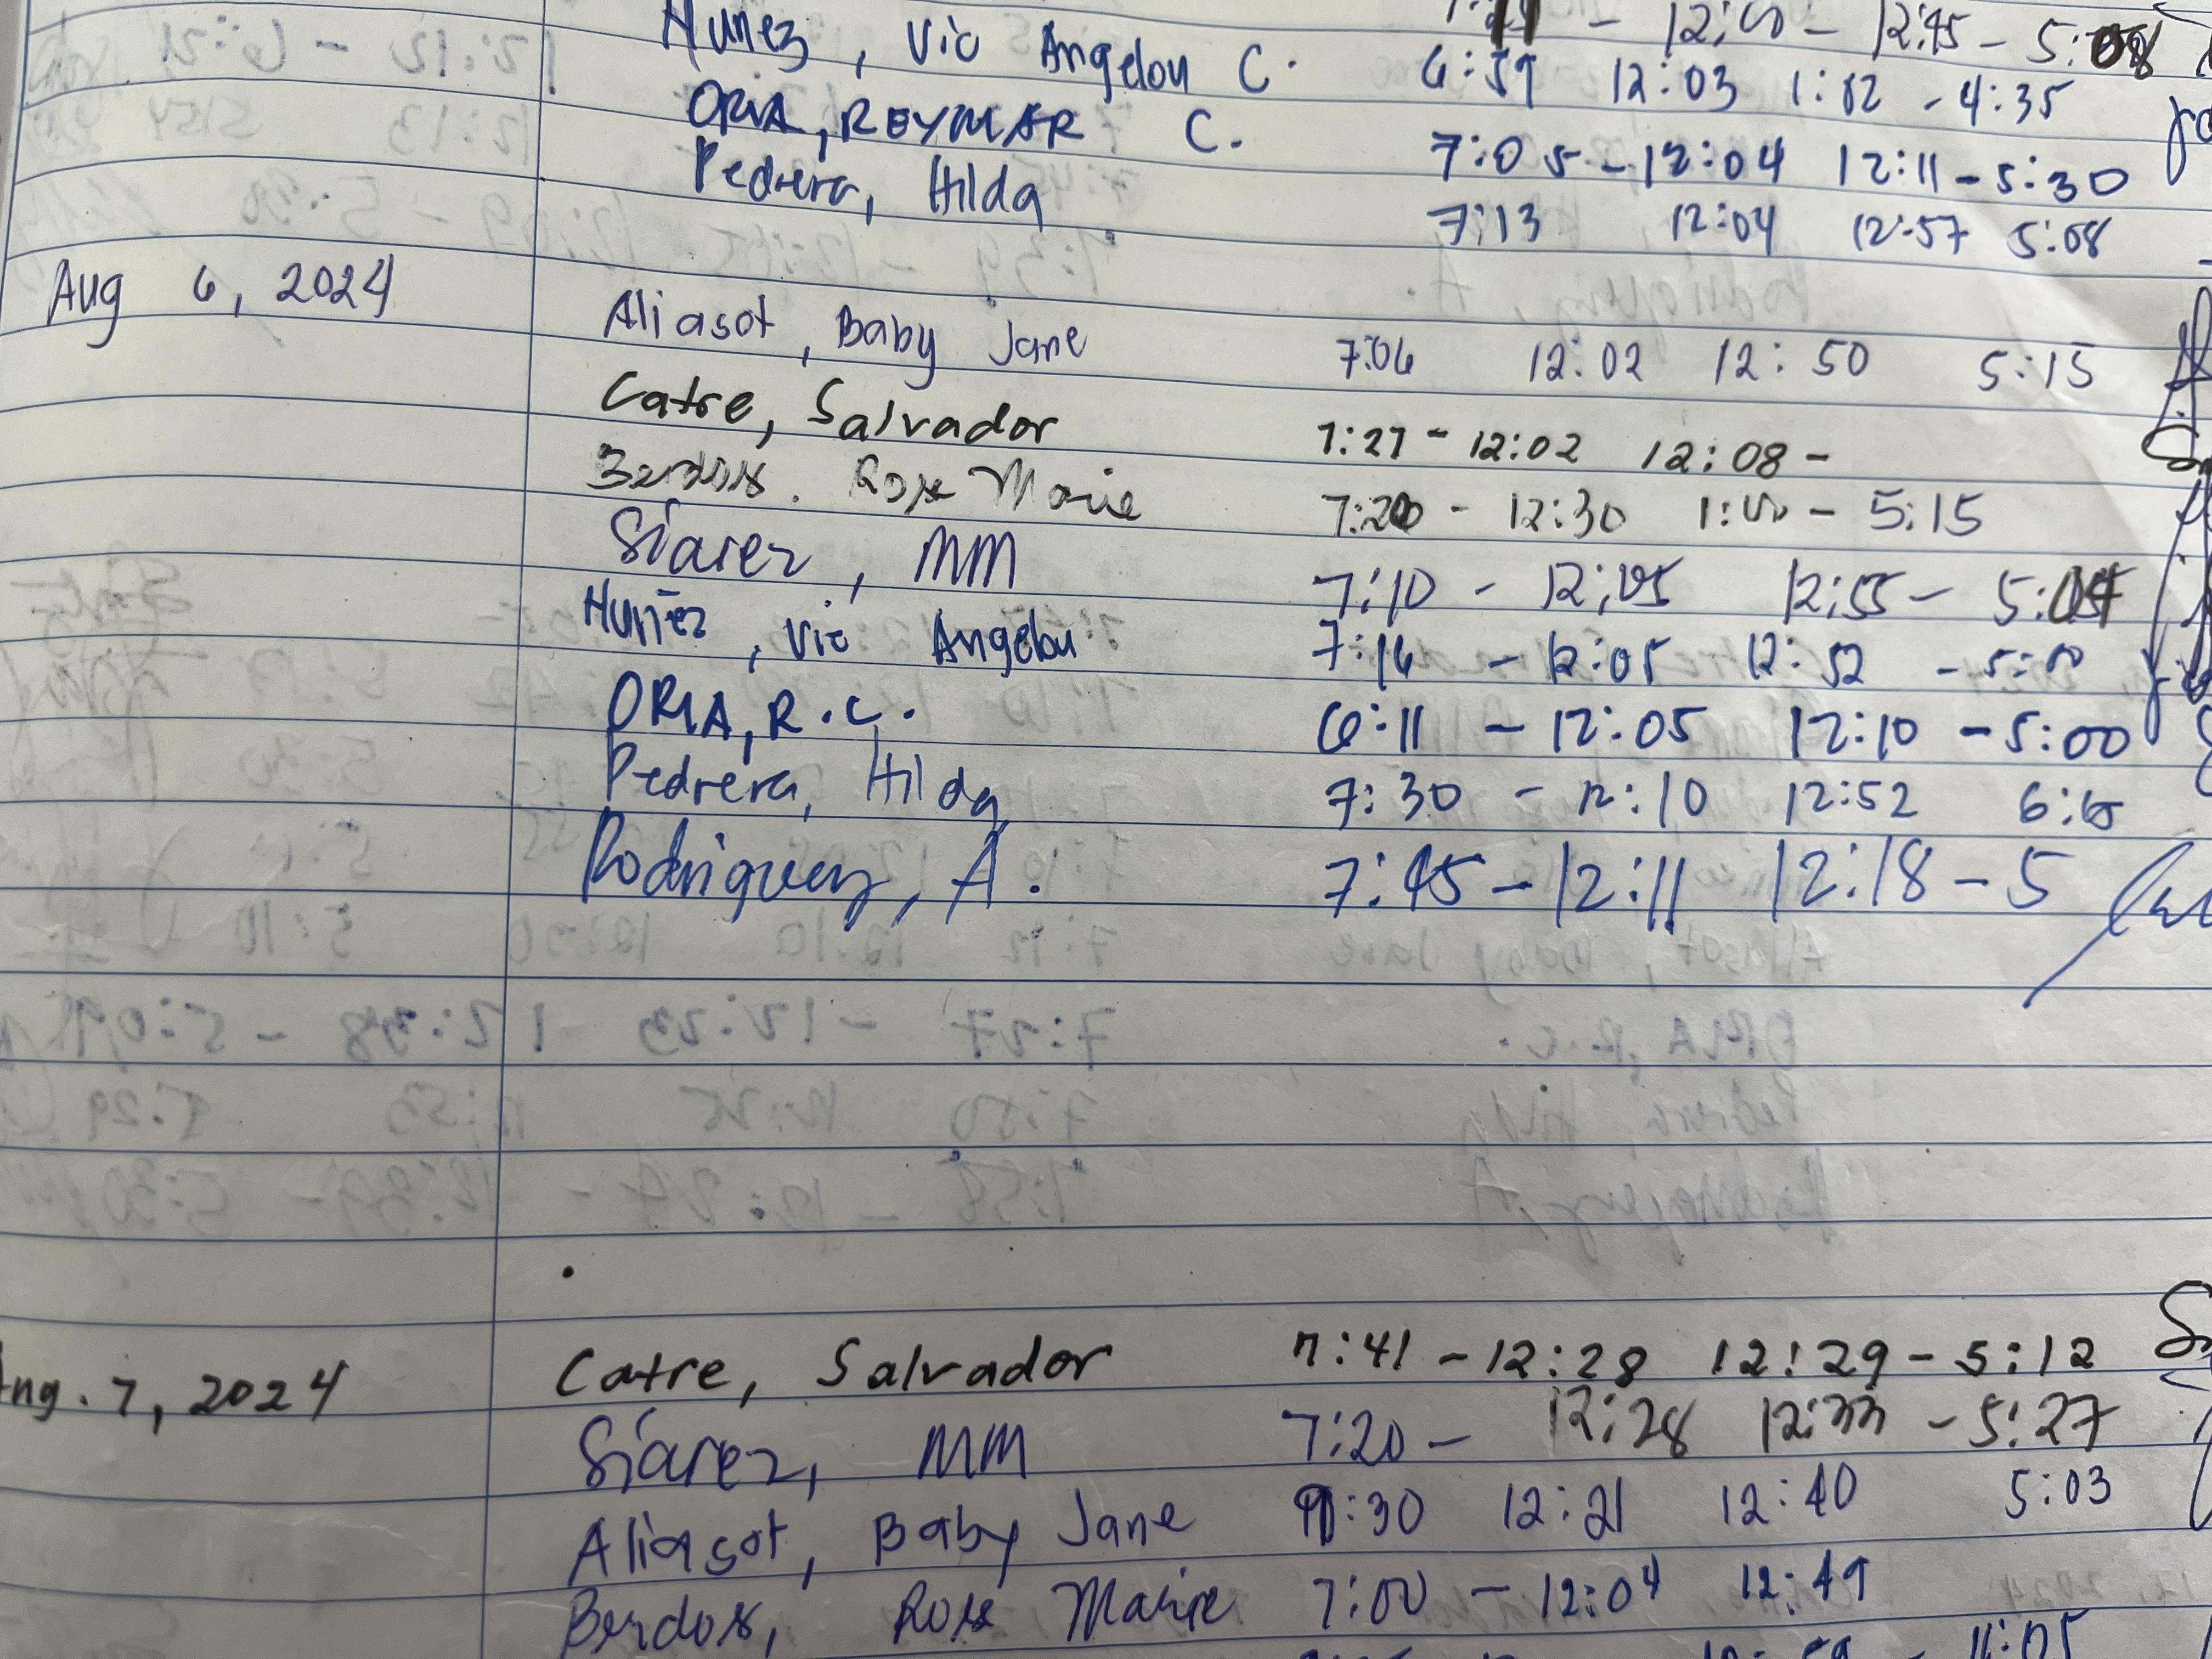 12:45 -
Nuñez, Vic Angelou C. 6:59 12:03 1:02 - 4:35
ORIA, REYMAR C. 7:05 - 12:04 12:11 - 5:30
Pedrera, Hilda 7:13 12:04 12:57 5:08
Aug 6, 2024 Aliasot, Baby Jane 7:06 12:02 12:50 5:15
Catre, Salvador 7:27 - 12:02 12:08 -
Berdos, Rose Marie - 12:30 1:00 - 5:15
Siarez, MM 7:10 - 12:05 12:55 -
Nuñez, Vic Angelou 7:16 - 12:05 12:52 -
ORIA, R.C. 6:11 - 12:05 12:10 - 5:00
Pedrera, Hilda 7:30 - 12:10 12:52
Rodriguez, A. 7:45 - 12:11 12:18 - 5
Aug. 7, 2024 Catre, Salvador 7:41 - 12:28 12:29 - 5:12
Siarez, MM 7:20 - 12:28 12:33 - 5:27
Aliasot, Baby Jane 12:21 12:40 5:03
Berdos, Rose Marie 7:00 - 12:04 12:49